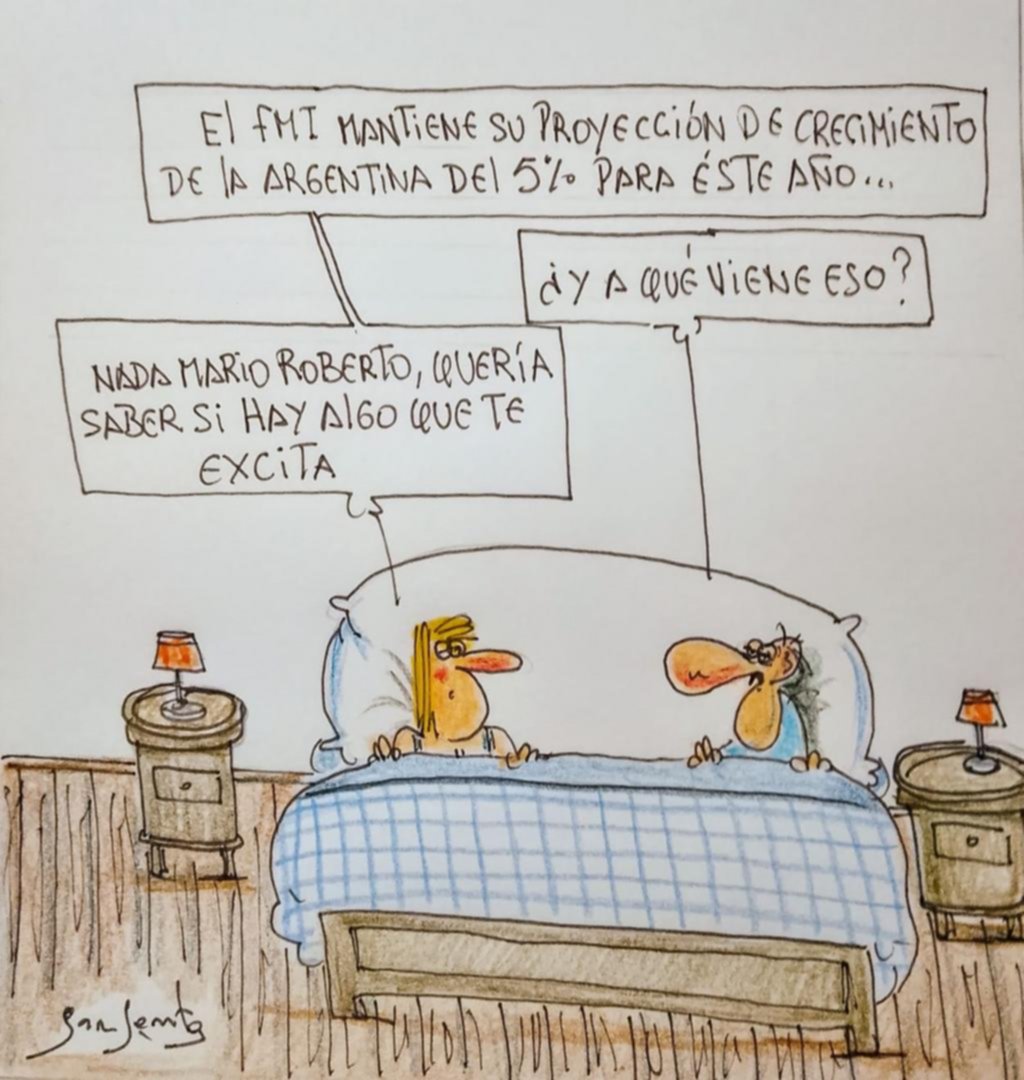 El FMI MANTIENE SU PROYECCIÓN DE CRECIMIENTO
DE lA ARGENTINA DEl 5% PARA ÉSTE AÑO...
¿Y A QUÉ VIENE ESO?
NADA MARIO ROBERTO, QUERÍA
SABER Si HAY AlGO QUE TE
EXCITA